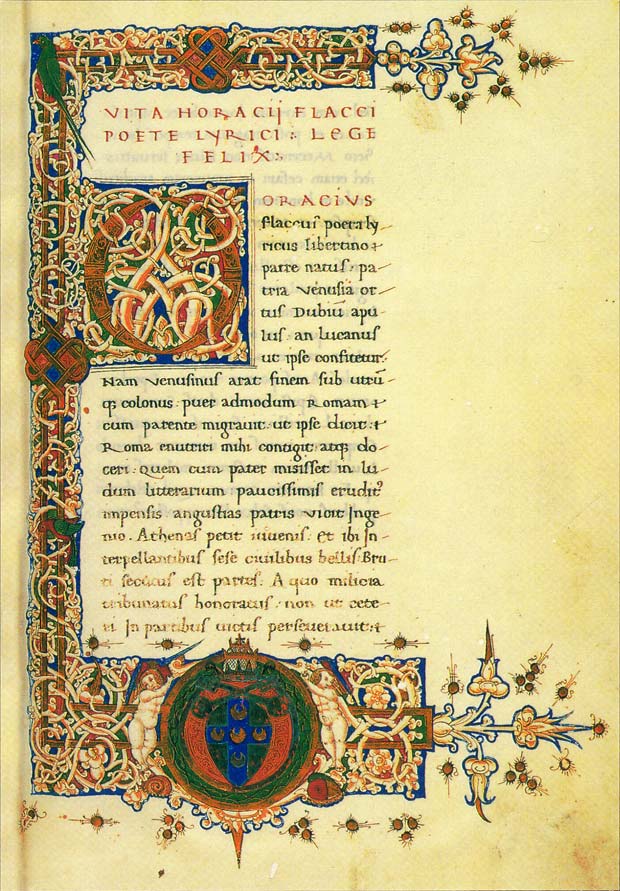 VITA HORACIJ FLACCI
POETE LYRICI : LEGE
FELIX :
ORACIVS
flaccus poeta ly
ricus libertino
patre natus : pa
tria Venusia or
tus Dubiū apu
lus . an lucanus
ut ipse confitetur .
Nam Venusinus arat finem sub utrū
q colonus . puer admodum Romam
cum parente migrauit . ut ipse dicit :
Roma enutriri mihi contigit atq do
ceri . Quem cum pater misisset in lu
dum litterarium paucissimis erudit
impensis angustias patris vicit Inge
nio . Athenas petit iuuenis . et ibi In
terpellantibus sese ciuilibus bellis Bru
ti secutus est partes . A quo milicia
tribunatus honoratus . non ut cete
ri In partibus uictis perseuerauit :